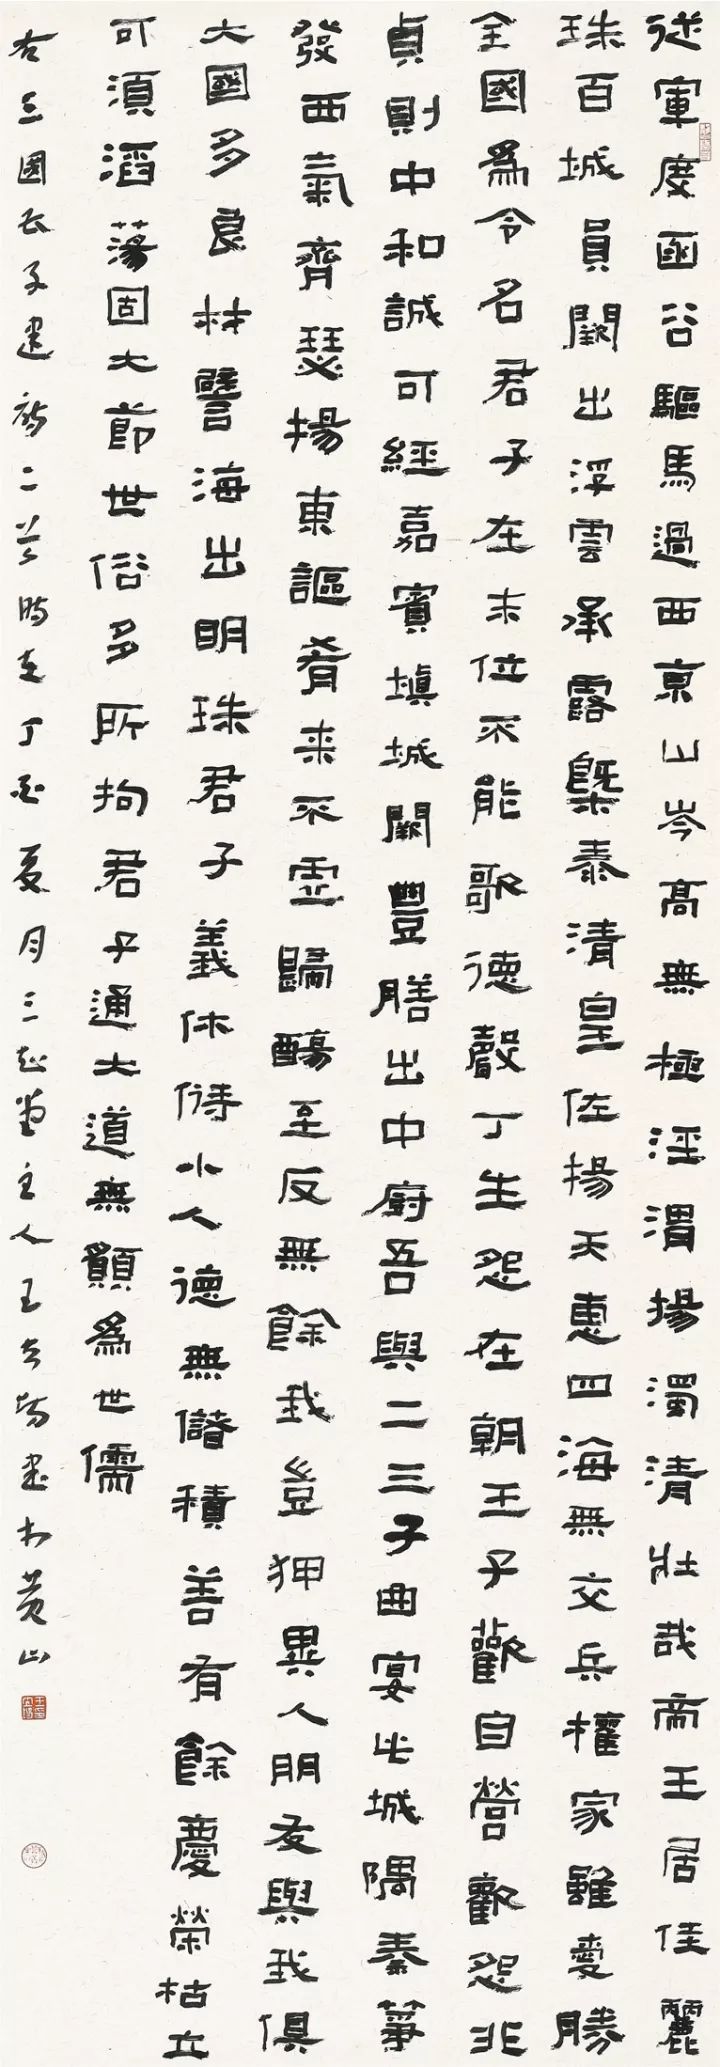 從軍度函谷驅馬過西京山岑高無極涇渭揚濁清壯哉帝王居佳麗
殊百城員闕出浮雲承露槩泰清皇佐揚天惠四海無交兵權家雖愛勝
全國為令名君子在末位不能歌德聲丁生怨在朝王子歡自營歡怨非
貞則中和誠可經嘉賓填城闕豐膳出中廚吾與二三子曲宴此城隅秦箏
發西氣齊瑟揚東謳肴来不虛歸觴至反無餘我豈狎異人朋友與我俱
大國多良材譬海出明珠君子義休偫小人德無儲積善有餘慶榮枯立
可須滔蕩固大節世俗多所拘君子通大道無願為世儒
右三國子建詩二首時在丁酉夏月三堂主人王書於黃山